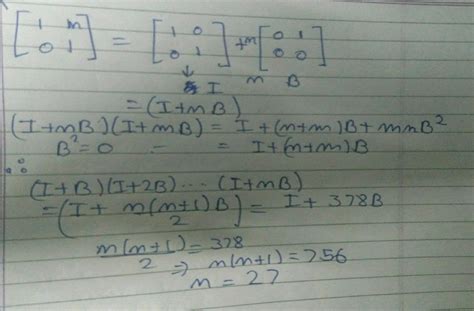 [1 m
0 1] = [1 0
0 1] + m [0 1
0 0]
↓ I m B
= (I+mB)
(I+mB)(I+mB) = I+(n+m)B+mnB²
B²=0 = = I+(n+m)B
∴
(I+B)(I+2B) ... (I+mB)
= (I + n(n+1)B/2) = I + 378B
n(n+1)/2 = 378
⇒ n(n+1) = 756
n = 27